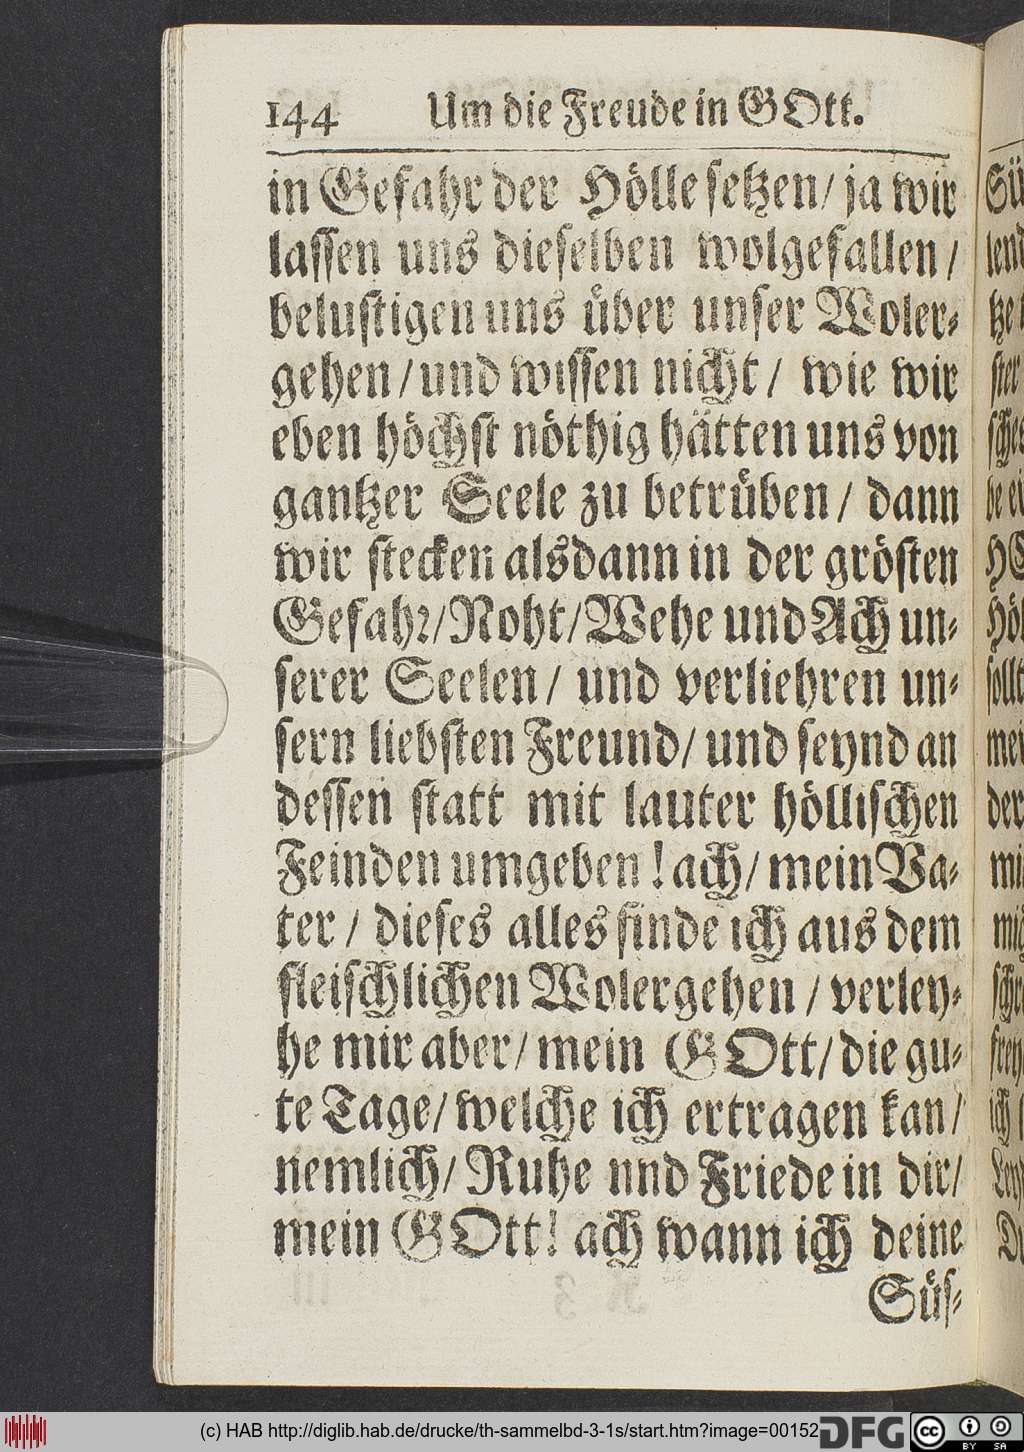 144 Um die Freude in GOtt.
in Gefahr der Hölle setzen/ ja wir
lassen uns dieselben wolgefallen/
belustigen uns über unser Woler-
gehen/ und wissen nicht/ wie wir
eben höchst nöthig hätten uns von
gantzer Seele zu betrüben/ dann
wir stecken alsdann in der grösten
Gefahr/ Noht/ Wehe und Ach un-
serer Seelen/ und verliehren un-
sern liebsten Freund/ und seynd an
dessen statt mit lauter höllischen
Feinden umgeben! ach/ mein Va-
ter/ dieses alles finde ich aus dem
fleischlichen Wolergehen/ verley-
he mir aber/ mein GOtt/ die gu-
te Tage/ welche ich ertragen kan/
nemlich/ Ruhe nnd Friede in dir/
mein GOtt! ach wann ich deine
Süs-
(c) HAB http://diglib.hab.de/drucke/th-sammelbd-3-1s/start.htm?image=00152
DFG
cc BY SA